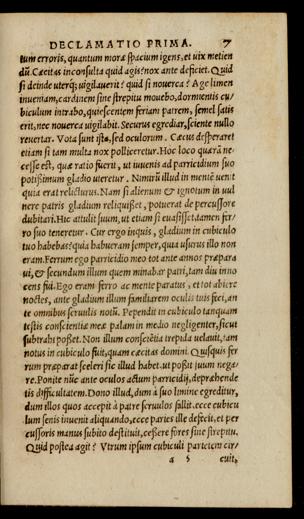 DECLAMATIO PRIMA. 7
tum erroris, quantum moræ spacium igens, et uix metien
dū. Cæcitas inconsulta quid agis? nox ante deficiet. Quid
si deinde uterq; uigilauerit? quid si nouerca? Age limen
inueniam, cardinem sine strepitu mouebo, dormientis cu
biculum intrabo, quiescentem feriam patrem, semel satis
erit, nec nouerca uigilabit. Securus egrediar, sciente nullo
reuertar. Vota sunt ista, sed oculorum. Cæcus desperaret
etiam si tam multa nox polliceretur. Hoc loco quærā ne-
cesse est, quæ ratio fuerit, ut iuuenis ad parricidium suo
potißimum gladio uteretur. Nimirū illud in mentē uenit
quia erat relicturus. Nam si alienum & ignotum in uul
nere patris gladium reliquisset, potuerat de percussore
dubitari. Hic attulit suum, ut etiam si euasisset, tamen fer-
ro suo teneretur. Cur ergo inquis, gladium in cubiculo
tuo habebas? quia habueram semper, quia usurus illo non
eram. Ferrum ego parricidio meo tot ante annos præpara
ui, & secundum illum quem minabar patri, tam diu inno
cens fui. Ego eram ferro ac mente paratus, et tot abiere
noctes, ante gladium illum familiarem oculis tuis feci, an
te omnibus seruulis notū. Pependit in cubiculo tanquam
testis conscientiæ meæ palam in medio negligenter, sicut
subtrahi posset. Non illum consciētia trepida uelauit, tam
notus in cubiculo fuit, quam cæcitas domini. Quisquis fer
rum præparat sceleri sic illud habet, ut poßit iuum nega-
re. Ponite nūc ante oculos actum parricidij, deprehende
tis difficultatem. Dono illud, dum à suo limine egreditur,
dum illos quos accepit à patre seruulos fallit, ecce cubicu
lum senis inuenit aliquando, ecce paries ille defecit, et per
cussoris manus subito destituit, cessere fores sine strepitu.
Quid postea agit? Vtrum ipsum cubiculi parietem cir-
a 5 cuit,